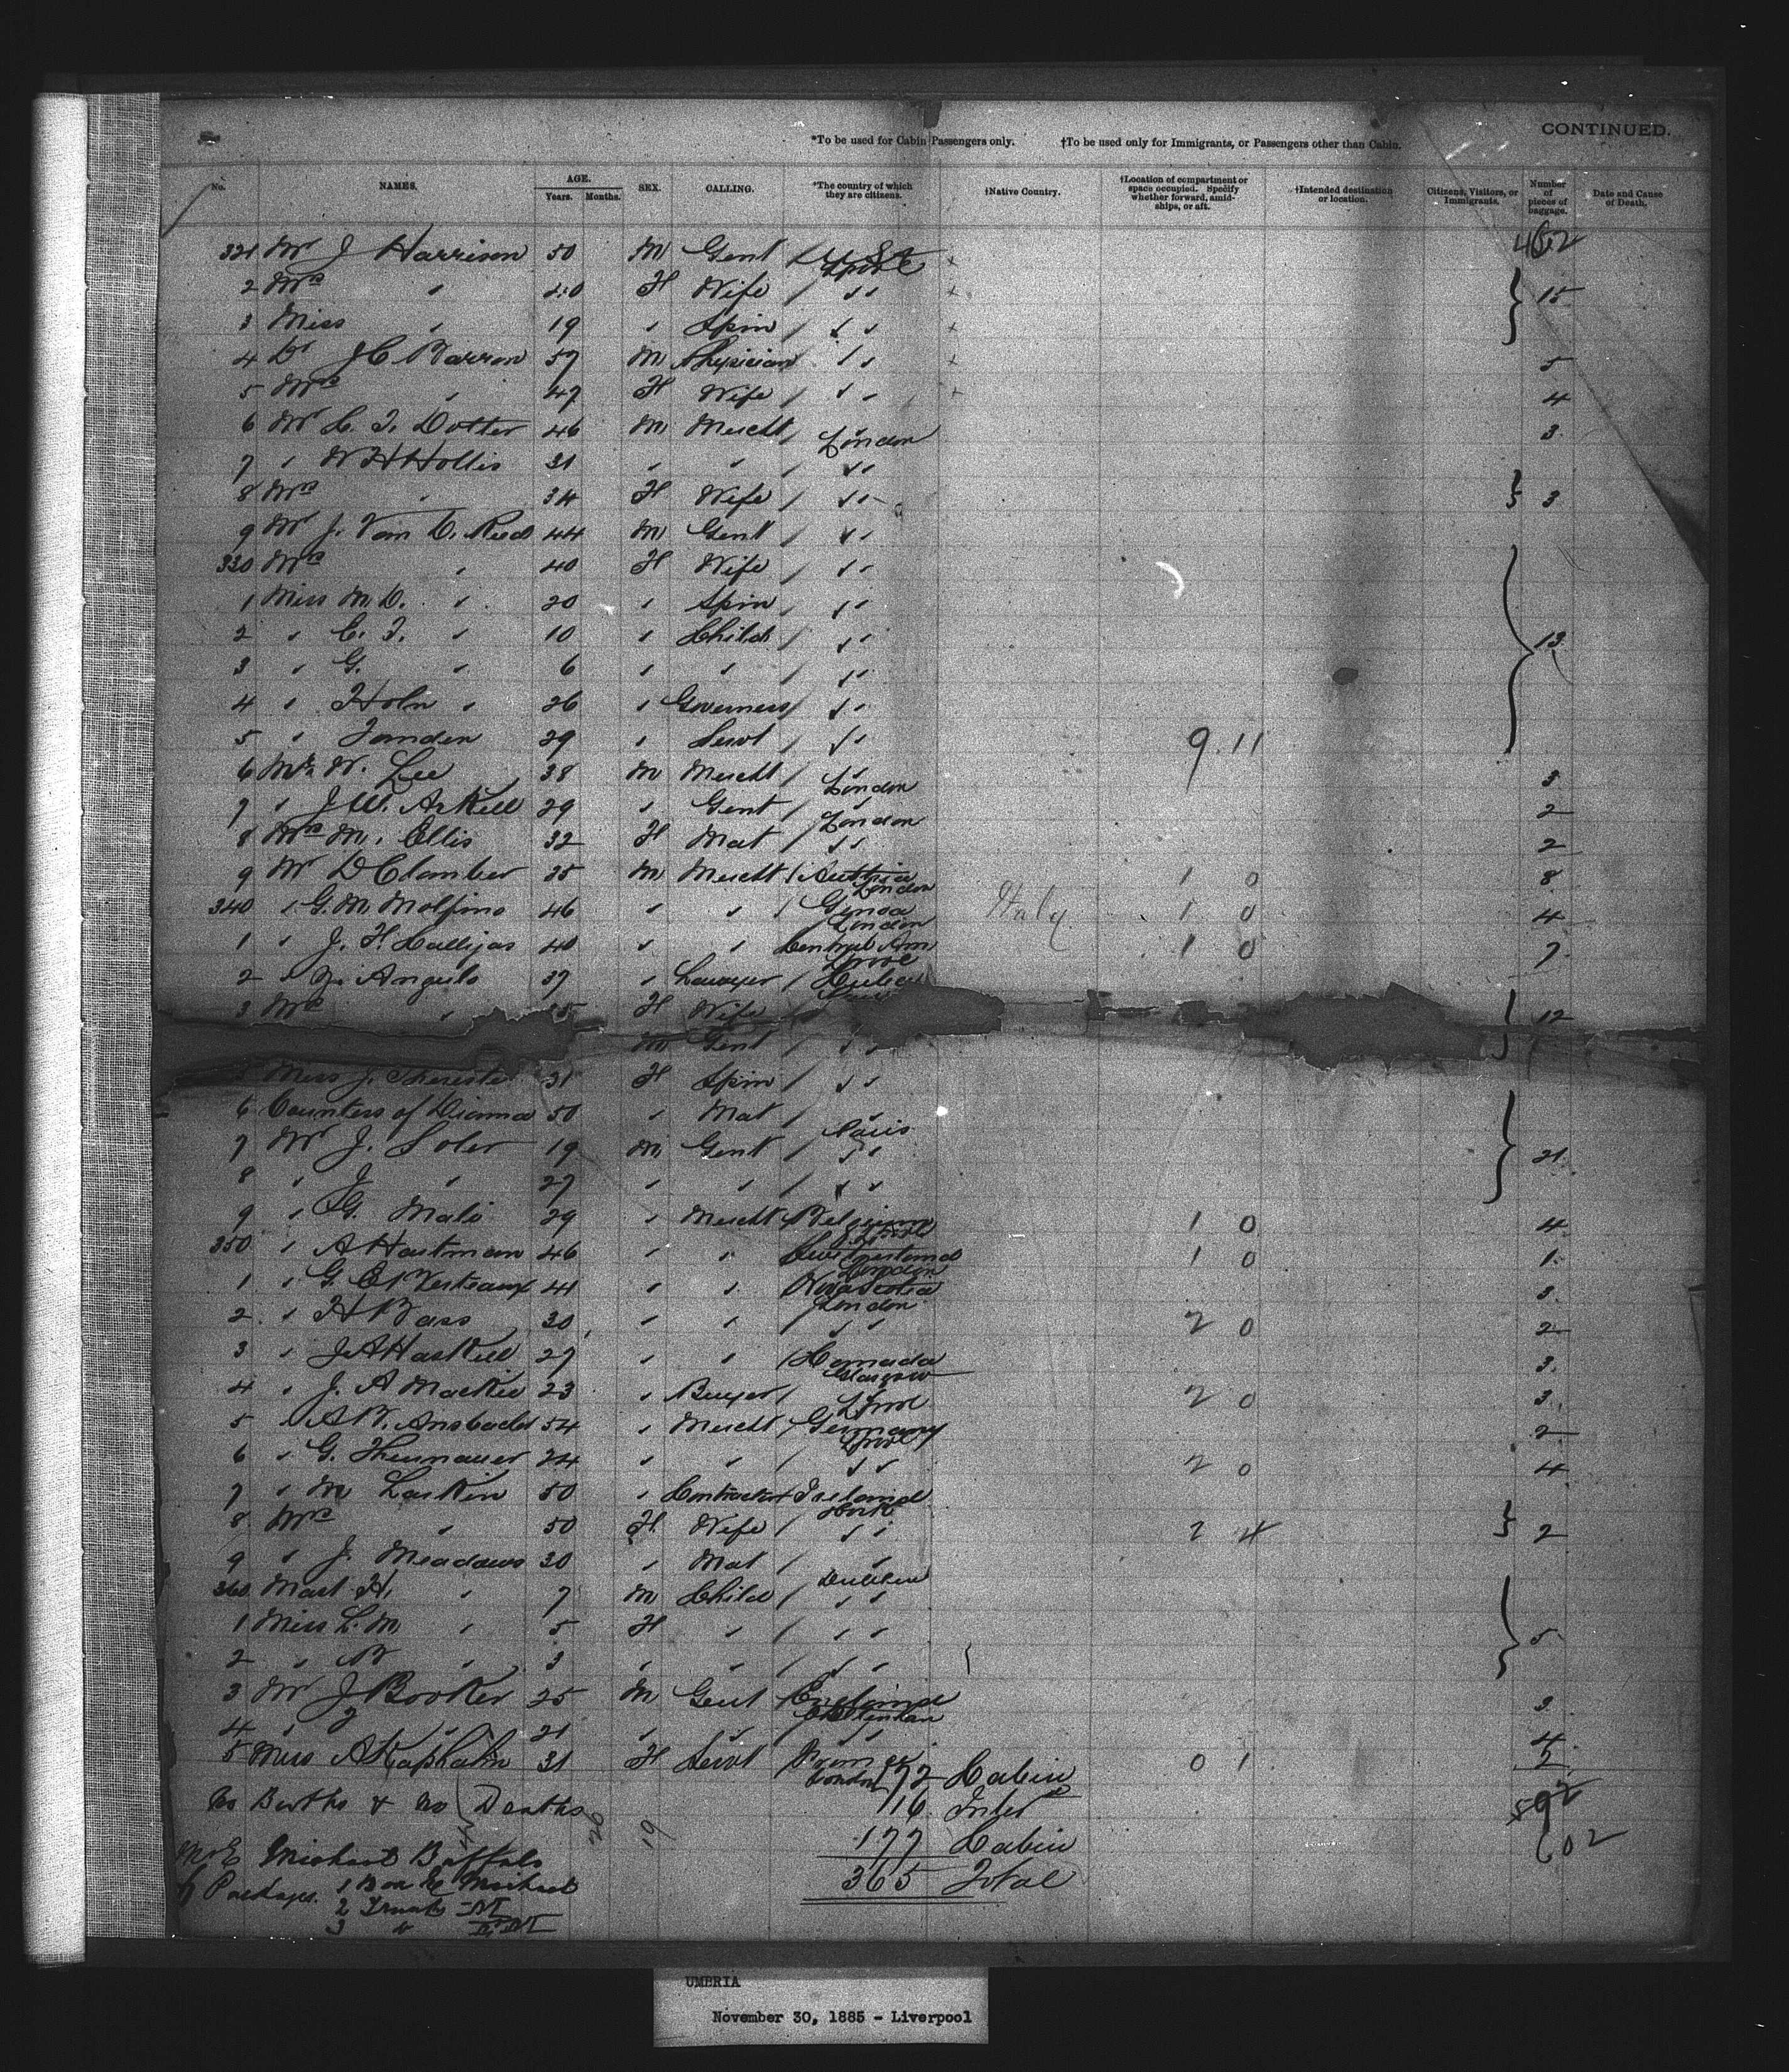 CONTINUED.
*To be used for Cabin Passengers only. †To be used only for Immigrants, or Passengers other than Cabin.
No. NAMES. AGE. Years. Months. SEX. CALLING. *The country of which they are citizens. †Native Country. †Location of compartment or space occupied. Specify whether forward, amidships, or aft. †Intended destination or location. Citizens, Visitors, or Immigrants. Number of pieces of baggage. Date and Cause of Death.
321 Mr J Harrison 50 M Gent
2 Mrs " 40 F Wife " " 15
3 Miss " 19 " Spin " "
4 Dr J C Barron 57 M Physician " " 5
5 Mrs " 47 F Wife " " 4
6 Mr C. T. Dotter 46 M Mercht London 3
7 " W H Hollis 31 " " " "
8 Mrs " 34 F Wife " " 3
9 Mr J. Van D. Reed 44 M Gent " "
330 Mrs " 40 F Wife " "
1 Miss M. D. " 20 " Spin " "
2 " C. T. " 10 " Child " " 13
3 " G. " 6 " " " "
4 " Holn " 26 " Governess " "
5 " 29 " Servt " " 9 11
6 Mr W. Lee 38 M Mercht London 3
7 " J. W. Arkell 29 " Gent London 2
8 Mrs M. Ellis 32 F Mat " " 2
9 Mr D Clamber 35 M Mercht Austria London 1 0 8
340 " G. M. Molfino 46 " " Genoa London Italy 1 0 4
1 " J. F. 40 " " Central Am Lpool 1 0 7
2 " Angulo 37 " Lawyer Cuba
3 Mrs " 35 F Wife 12
M Gent " "
5 Miss J. 31 F Spin " "
6 Countess of 50 " Mat Paris
7 Mr J. Soler 19 M Gent " " 21
8 " J " 27 " " " "
9 " G. Mali 29 " Mercht Belgium 1 0 4
350 " A Hartman 46 " " Switzerland London 1 0 1
1 " G. E. 41 " " Nova Scotia London 3
2 " H Bass 30 " " " " 2 0 2
3 " J A Haskell 27 " " Canada Glasgow 3
4 " J. A Mackie 23 " Buyer Lpool 2 0 3
5 " A B. Ansbach 54 " Mercht Germany Lpool 2
6 " G. 24 " " " " 2 0 4
7 " M Larkin 50 " Contractor Ireland Cork
8 Mrs " 50 F Wife " " 2 4 2
9 " J. Meadows 30 " Mat Dublin
360 Mast H. " 7 M Child " "
1 Miss L. M. " 5 F " " " 5
2 " B " 3 " " " "
3 Mr J Booker 25 M Gent England Cheltenham 3
4 " " 21 " " " " 4
5 Miss A Kaphahn 31 F Servt London 0 1 2
172 Cabin
No Births & no Deaths 16 Inter 592
177 Cabin 602
Michael Buffalo
365 Total
Packages. 1 Box Michael
2 Trunk
3 "
UMBRIA
November 30, 1885 - Liverpool